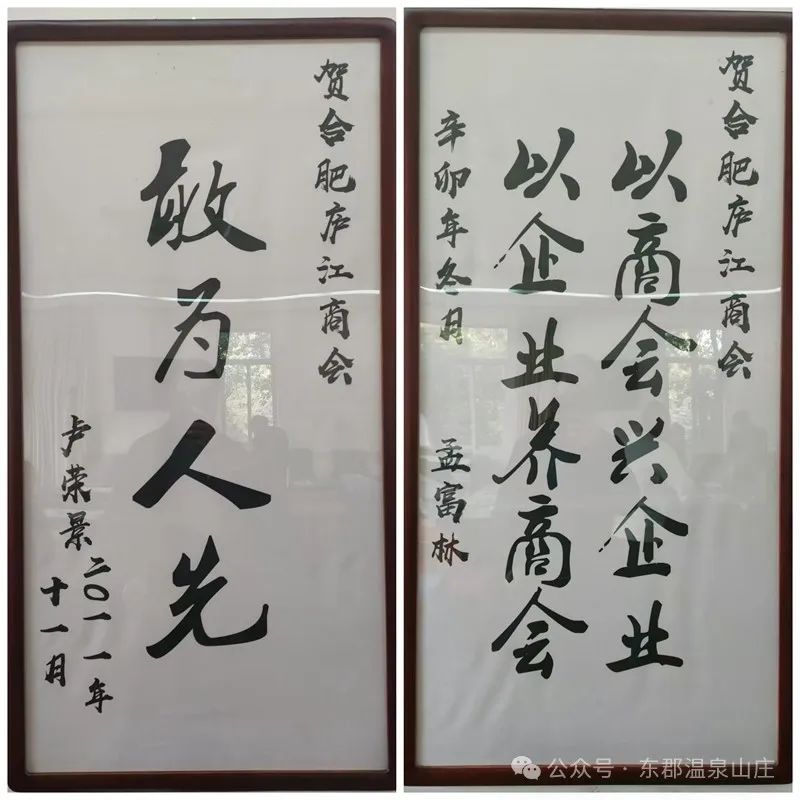 贺合肥庐江商会
敢为人先
卢荣景
二〇一一年
十一月
贺合肥庐江商会
以商会兴企业
以企业养商会
辛卯年冬月
孟富林
公众号·东郡温泉山庄